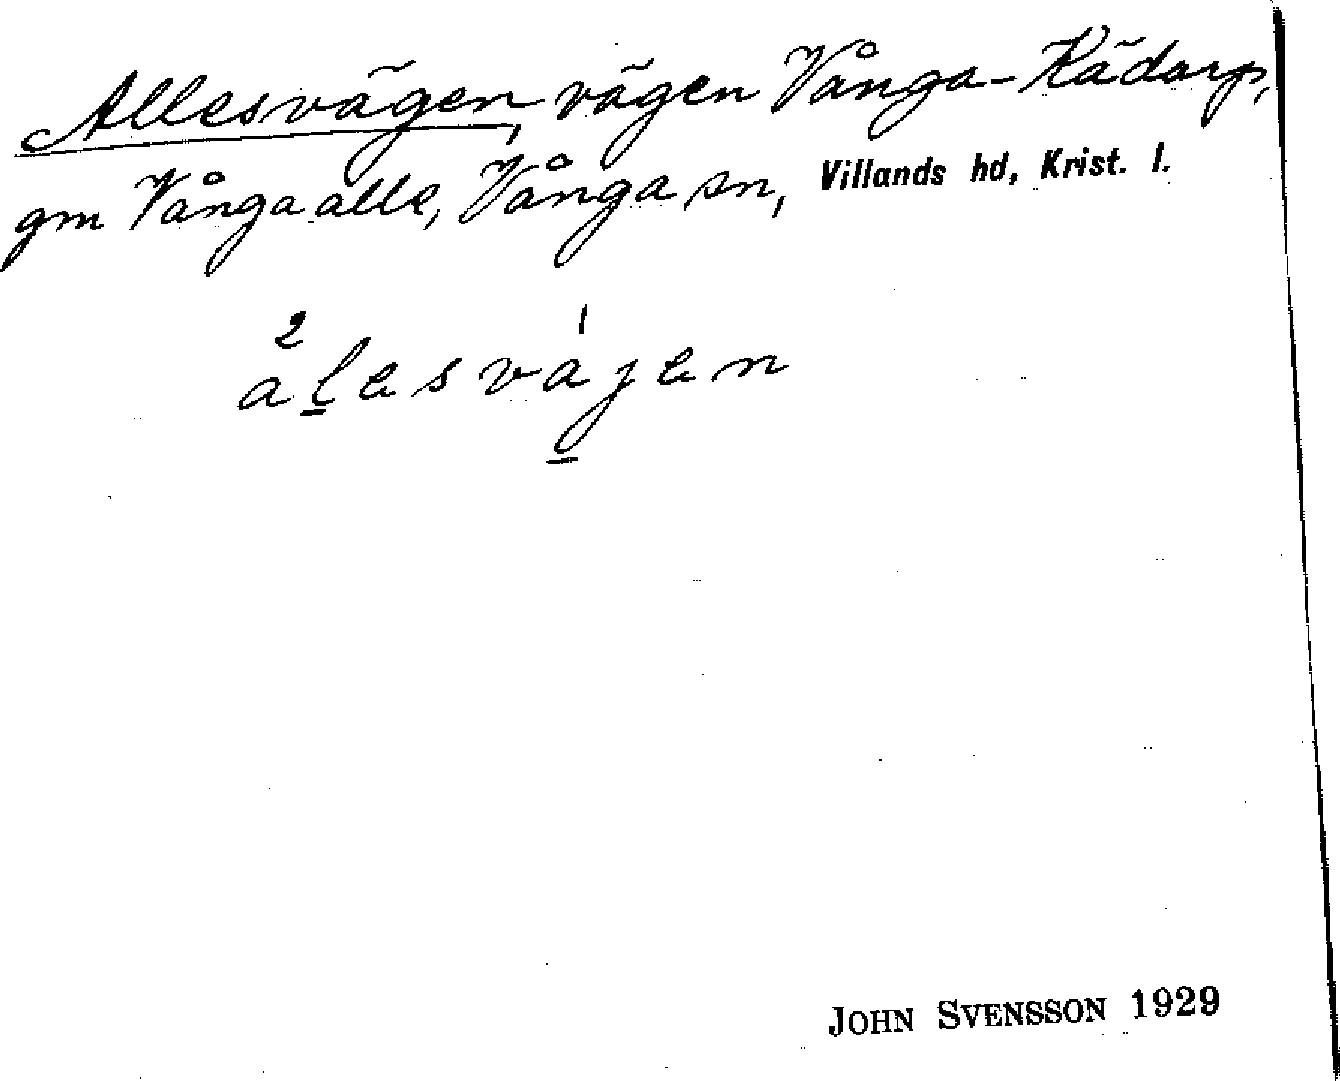 Allesvägen, vägen Vånga-Kädarp,
gm Vånga alle, Vånga sn, Villands hd, Krist. l.
alesvajen
JOHN SVENSSON 1929